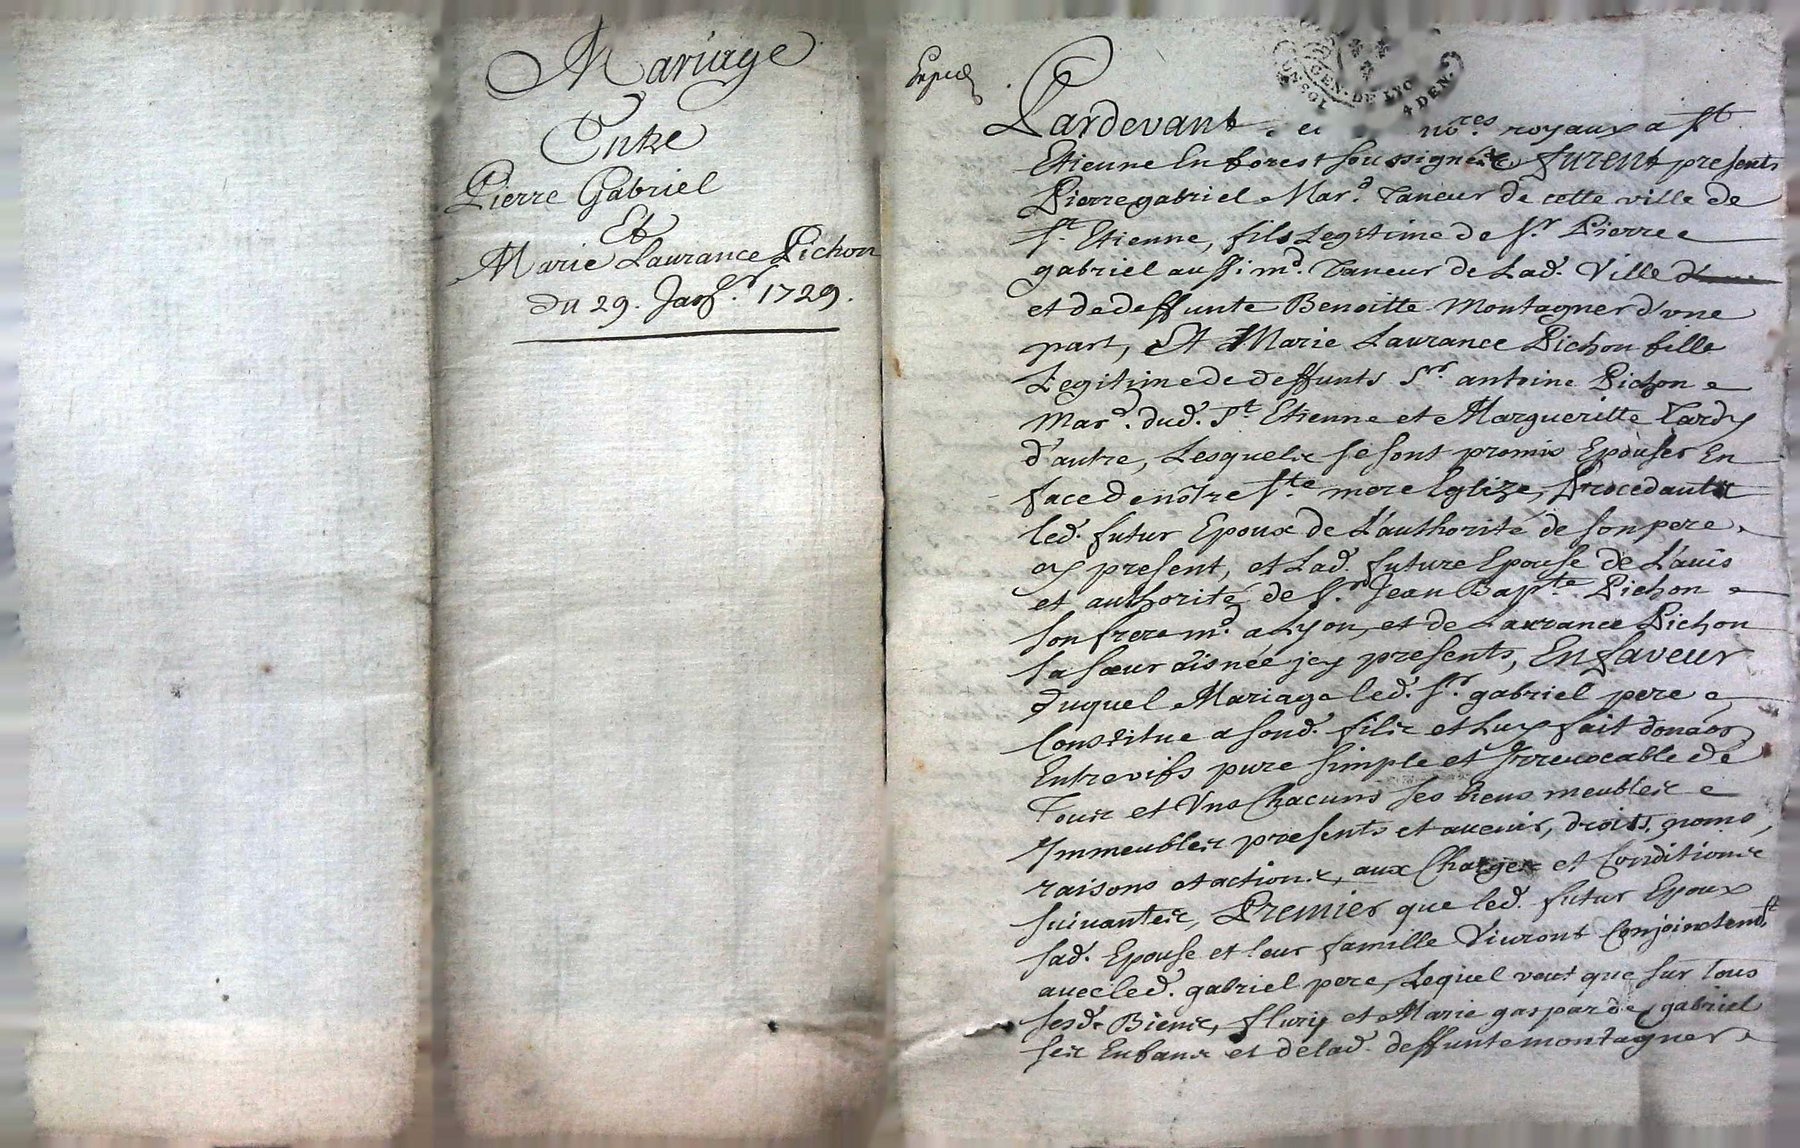 Mariage
Entre
Pierre Gabriel
Et
Marie Laurance Pichon
du 29. Janv.r 1729.
GEN. DE LYO
UN. SOL 4 DEN.
Pardevant no.res royaux a St.
Etienne En forest soussignéz furent presents
Pierre gabriel Mar.d Taneur de cette ville de
St. Etienne, fils Legitime de Sr. Pierre
gabriel aussi md. Taneur de Lad. Ville
et de deffunte Benoitte Montagner d'vne
part, Et Marie Laurance Pichon fille
Legitime de deffunts Sr. antoine Pichon
Mar.d dud. St. Etienne et Margueritte Tardy
d'autre, Lesquels se sont promis Epouser En
face de nôtre Ste. mere Eglize, Procedants
led. futur Epoux de L'authorité de son pere
cy present, et Lad. future Epouse de L'auis
et authorité de Sr. Jean Bapte. Pichon
son frere md. a Lyon, et de Laurance Pichon
sa sœur aisnée jcy presents, En faveur
duquel Mariage led. Sr. gabriel pere
Constitue a sond. fils et Luy fait donâôn
Entre vifs pure simple et Irreuocable de
Tous et Vns Chacuns ses biens meubles
Immeubles presents et auenir, droits, noms,
raisons et actions, aux Charges et Conditions
suiuantes, Premier que led. futur Epoux
sad. Epouse et leur famille Viuront Conjoinctemt.
auec led. gabriel pere, Lequel veut que sur tous
sesd. Biens, flury et Marie gasparde gabriel
ses Enfans et de lad. deffunte montagner